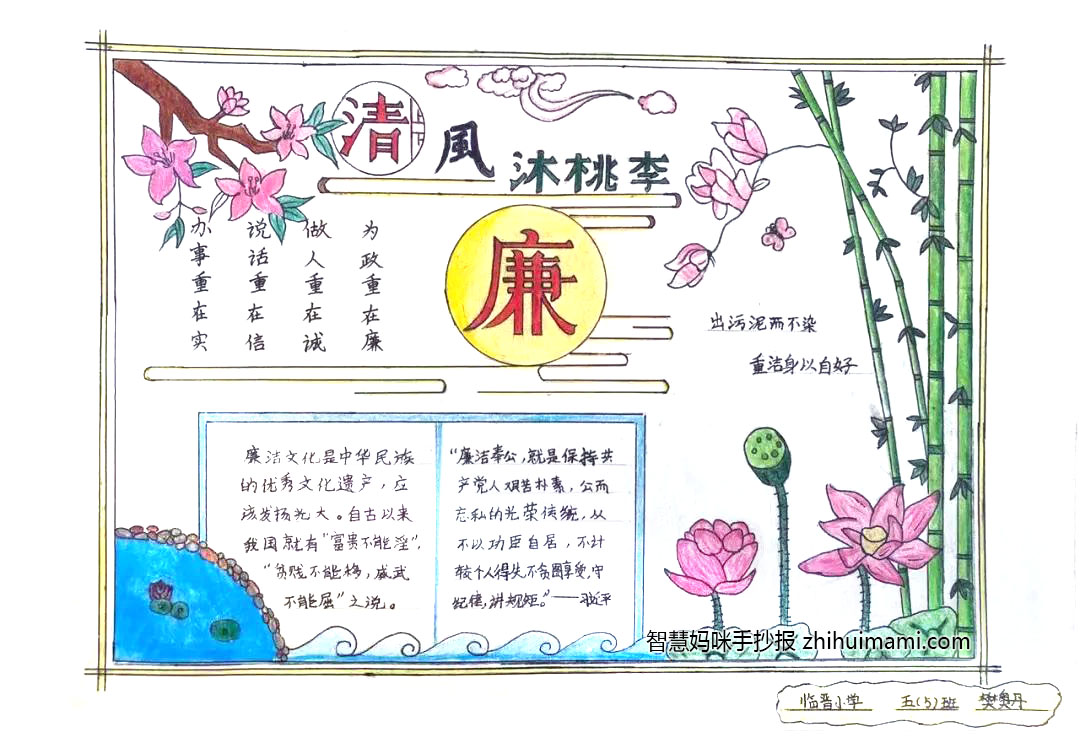 清風沐桃李
廉
为政重在廉
做人重在诚
说话重在信
办事重在实
出污泥而不染
重洁身以自好
廉洁文化是中华民族
的优秀文化遗产，应
该发扬光大。自古以来
我国就有"富贵不能淫"，
"贫贱不能移，威武
不能屈"之说。
"廉洁奉公，就是保持共
产党人艰苦朴素，公而
忘私的光荣传统，从
不以功臣自居，不计
较个人得失，不贪图享受，守
纪律，讲规矩。"——习近平
智慧妈咪手抄报 zhihuimami.com
临晋小学 五(5)班 樊奥丹